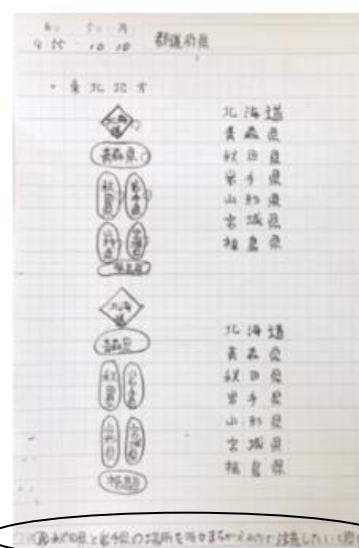 9:55 10/10 都道府県
・東北地方
北海道
青森県
秋田県 岩手県
山形県 宮城県
福島県
北海道
青森県
秋田県
岩手県
山形県
宮城県
福島県
北海道
青森県
秋田県 岩手県
山形県 宮城県
福島
北海道
青森県
秋田県
岩手県
山形県
宮城県
福島県
秋田県と岩手県の場所を
注意したい